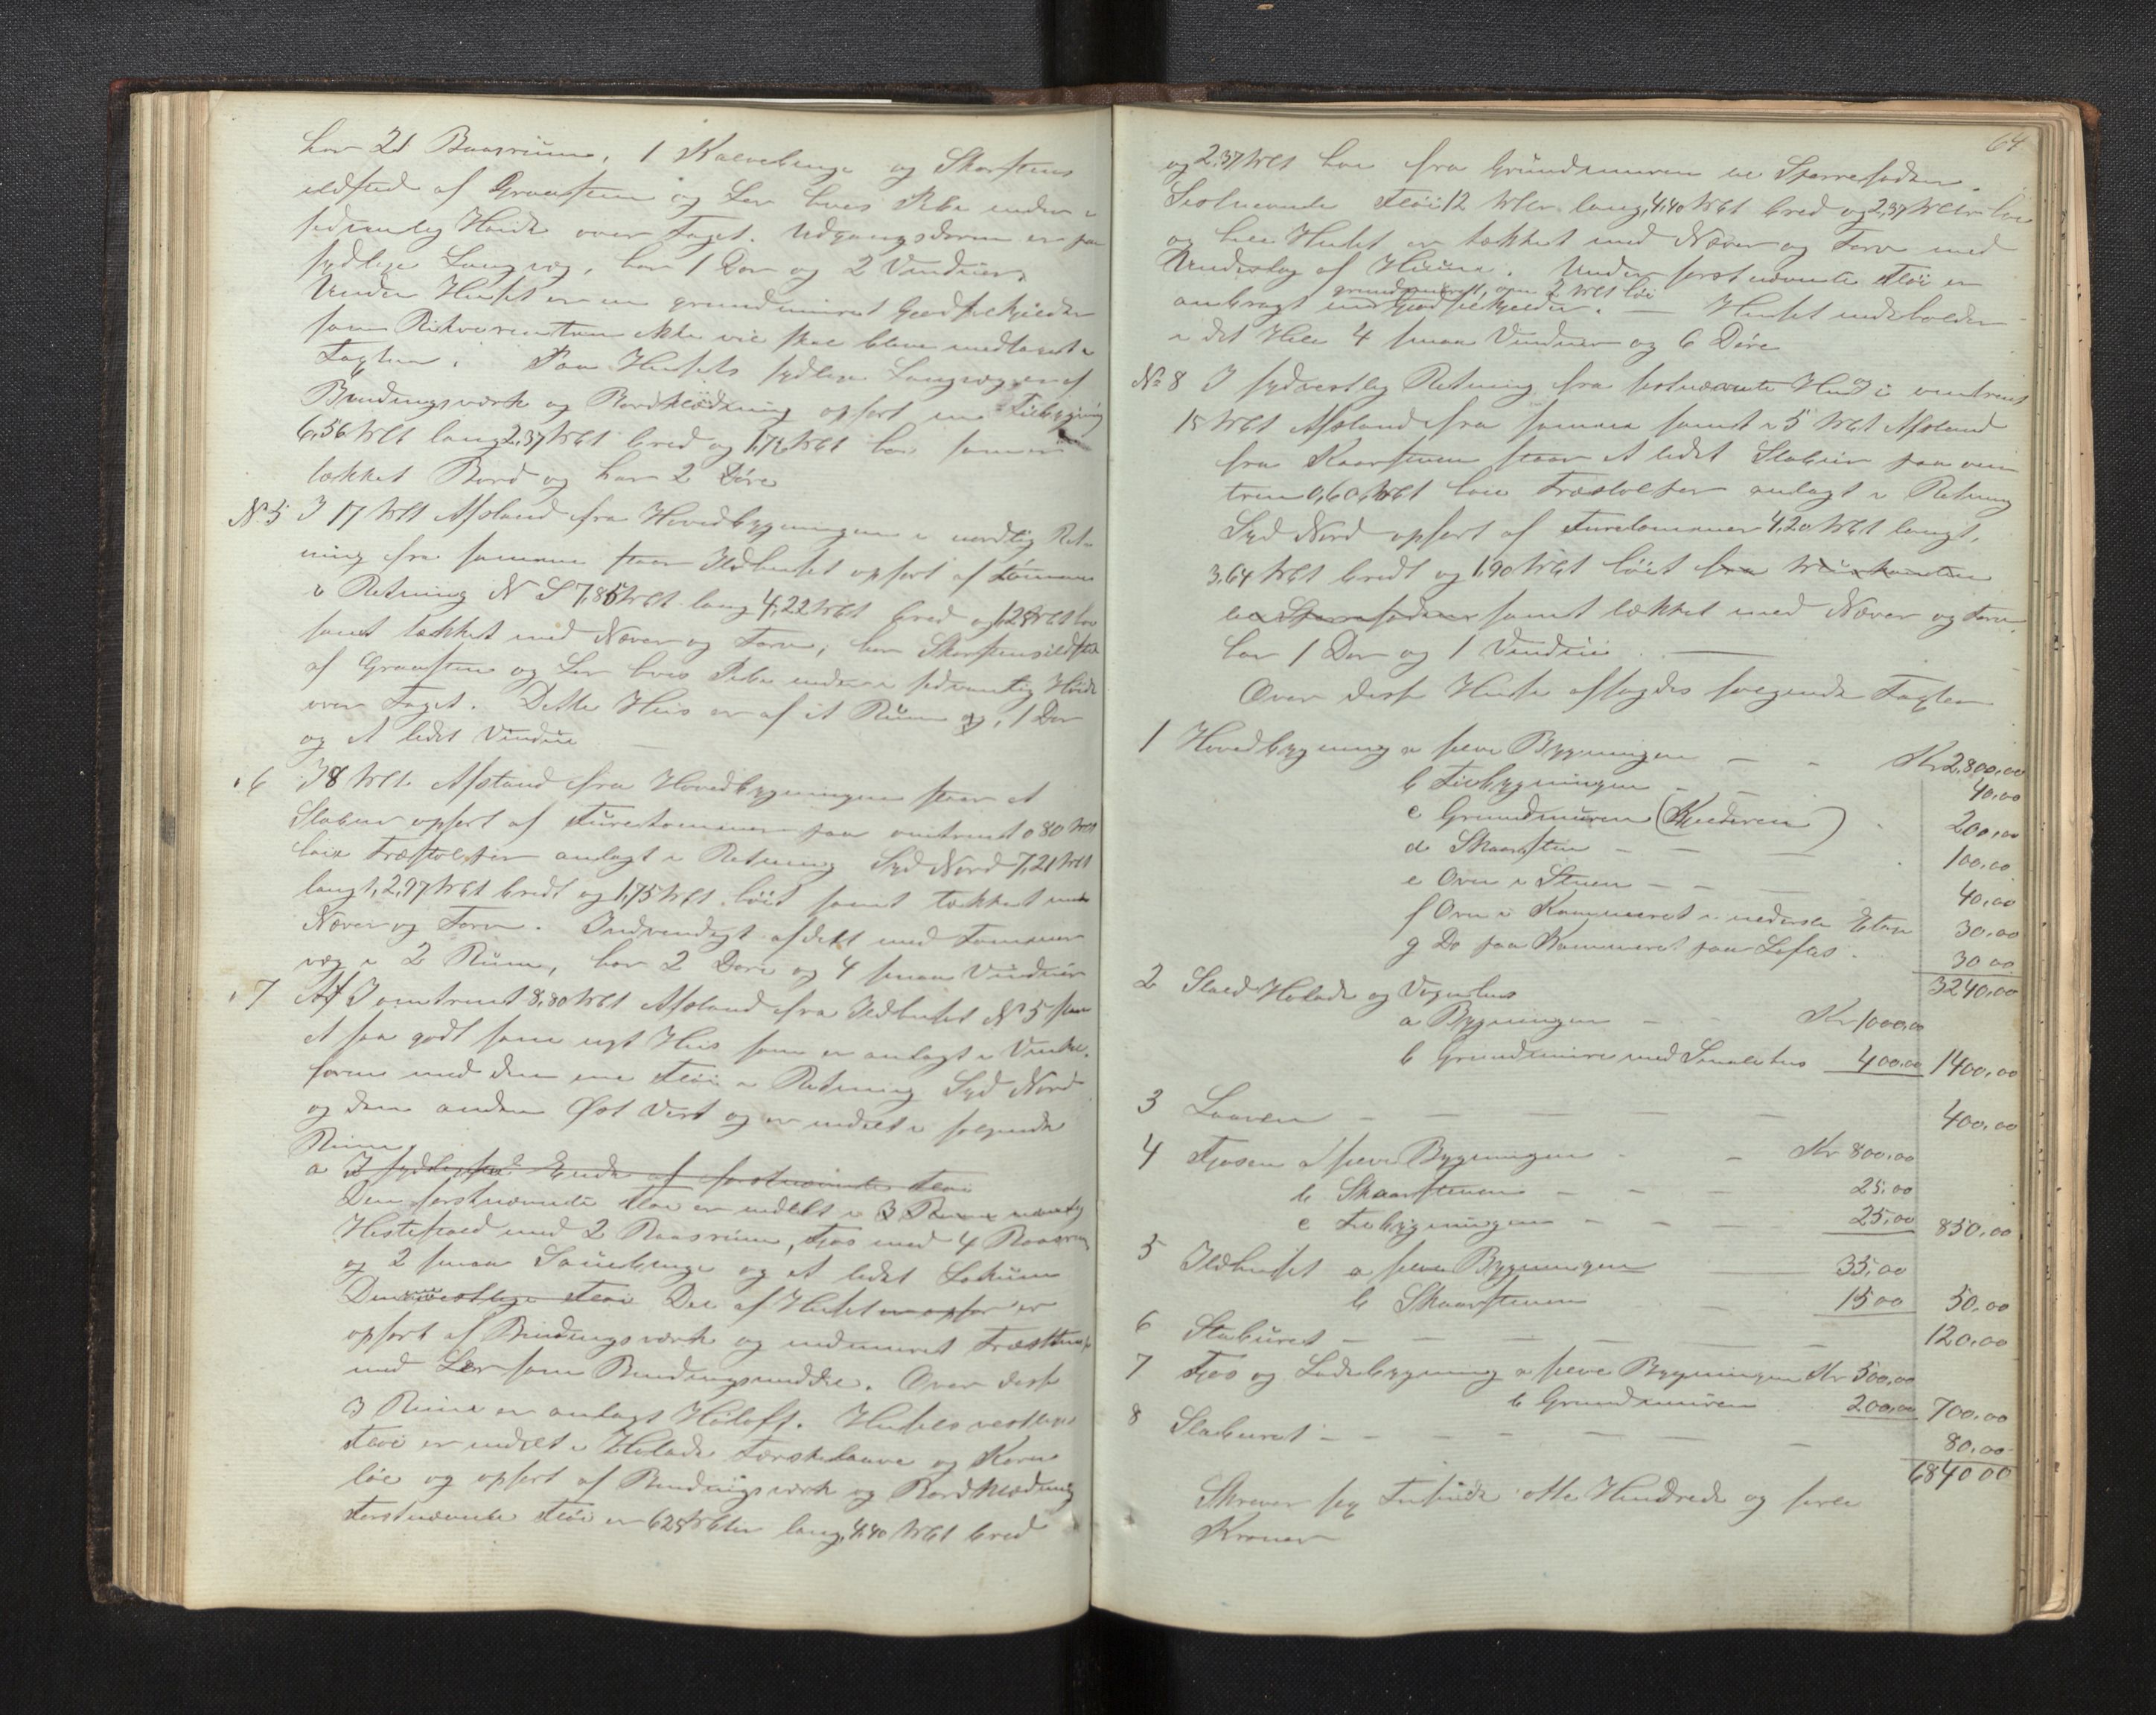 har 21 Baasrum, 1 Kalvebinge og Skorstens
ildsted af Graasten og Ler hvis Pibe ender i
sedvanlig Høide over Taget. Udgangsdøren er paa
sydlige Langvæg, har 1 Dør og 2 Vinduer.
Under Huset er en grundmuret Gjødselkjelder
som Rekvirenten ikke vil skal blive medtaget i
Taxten. Paa Husets sydlige Langvæg er af
Bindingsværk og Bordklædning opført en Tilbygning
6,56 Mtr lang 2,37 Mtr bred og 1,72 Mtr høi som er
tækket Bord og har 2 Døre
No 5 I 17 Mtr Afstand fra Hovedbygningen i nordlig Ret-
ning fra samme staar Ildhuset opført af Tømmer
i Retning N S 7,85 Mtr lang 4,22 Mtr bred og 1,25 Mtr høi
samt tækket med Næver og Torv, har Skorstensildsted
af Graasten og Ler hvis Pibe ender i sedvanlig Høide
over Taget. Dette Hus er af et Rum og, 1 Dør
og et lidet Vindue
" 6 I 8 Mtr. Afstand fra Hovedbygningen staar et
Stabur opført af Furetømmer paa omtrent 0,80 Mtr
høie Træstolper anlagt i Retning Syd Nord 7,21 Mtr
langt, 2,97 Mtr bredt og 1,75 Mtr. høit samt tækket med
Næver og Torv. Indvendigt afdelt med Tømmer
væg i 2 Rum, har 2 Døre og 4 smaa Vinduer
" 7 I omtrent 8,80 Mtr Afstand fra Ildhuset No 5 staar
et saa godt som nyt Hus som er anlagt i Vinkel-
form med den ene Fløi i Retning Syd Nord
og den anden Øst Vest og er inddelt i følgende
Rum
a I sydlige Ende af førstnævnte Fløi
Den førstnævnte Fløi er inddelt i 3 Rum nemlig
Hestestald med 2 Baasrum, Fjøs med 4 Baasrum
og 2 smaa Sauebinge og et lidet Lokum
Den vestlige Fløi Del af Huset er opfør er
opført af Bindingsværk og indmuret Træstumper
med Ler som Bindingsmiddel. Over disse
3 Rum er anlagt Høloft. Husets vestlige
Fløi er inddelt i Hølade Tærskelaave og Korn
løe og opført af Bindingsværk og Bordklædning
Førstnævnte Fløi er 6,25 Mtr lang, 4,40 Mtr bred
64
og 2,37 Mtr høi fra Grundmuren til Sperrefoden.
Sistnævnte Fløi 12 Mtr lang, 4,40 Mtr bred og 2,37 Mtr høi
og hele Huset er tækket med Næver og Torv med
Underlag af Huun. Under førstnævnte Fløi er
grundmuret, om 2 Mtr høi
anbragt en Gjødselkjelder. — Huset indeholder
i det Hele 4 smaa Vinduer og 6 Døre
No 8 I sydvestlig Retning fra sistnævnte Hus i omtrent
15 Mtr Afstand fra samme samt i 5 Mtr Afstand
fra staar et lidet Stabur paa om
trent 0,60 Mtr høie Træstolper anlagt i Retning
Syd Nord opført af Furetømmer 4,20 Mtr langt,
3,64 Mtr bredt og 1,90 Mtr høit fra Murkanten
til Sperrefoden samt tækket med Næver og Torv,
har 1 Dør og 1 Vindue. —
Over disse Huse afsagdes følgende Taxter
1 Hovedbygning a selve Bygningen — - Kr 2,800,00
b Tilbygningen - — 40,00
c Grundmuren (Kjelderen) 200,00
d Skorsten — — — 100,00
e Ovn i Stuen — - — 40,00
f Ovn i Kammeret i nederste Etage 30,00
g Do paa Kammeret paa Loftet. 30 00
3240,00
2 Stald Hølade og Vognhus
a Bygningen — - Kr 1000,00
b Grundmure med Smalehus 400,00 1400,00
3 Laaven — — — — — 400,00
4 Fjøsen a selve Bygningen - — Kr 800,00
b Skorstenen — — — 25,00
c Tilbygningen — — — 25,00 850,00
5 Ildhuset a selve Bygningen — 35,00
b Skorstenen — 15 00 50,00
6 Staburet — — — — — 120,00
7 Fjøs og Ladebygning a selve Bygningen Kr 500,00
b Grundmuren 200,00 700,00
8 Staburet — — — — — 80,00
6840 00
Skriver sex Tusinde otte Hundrede og firti
Kroner